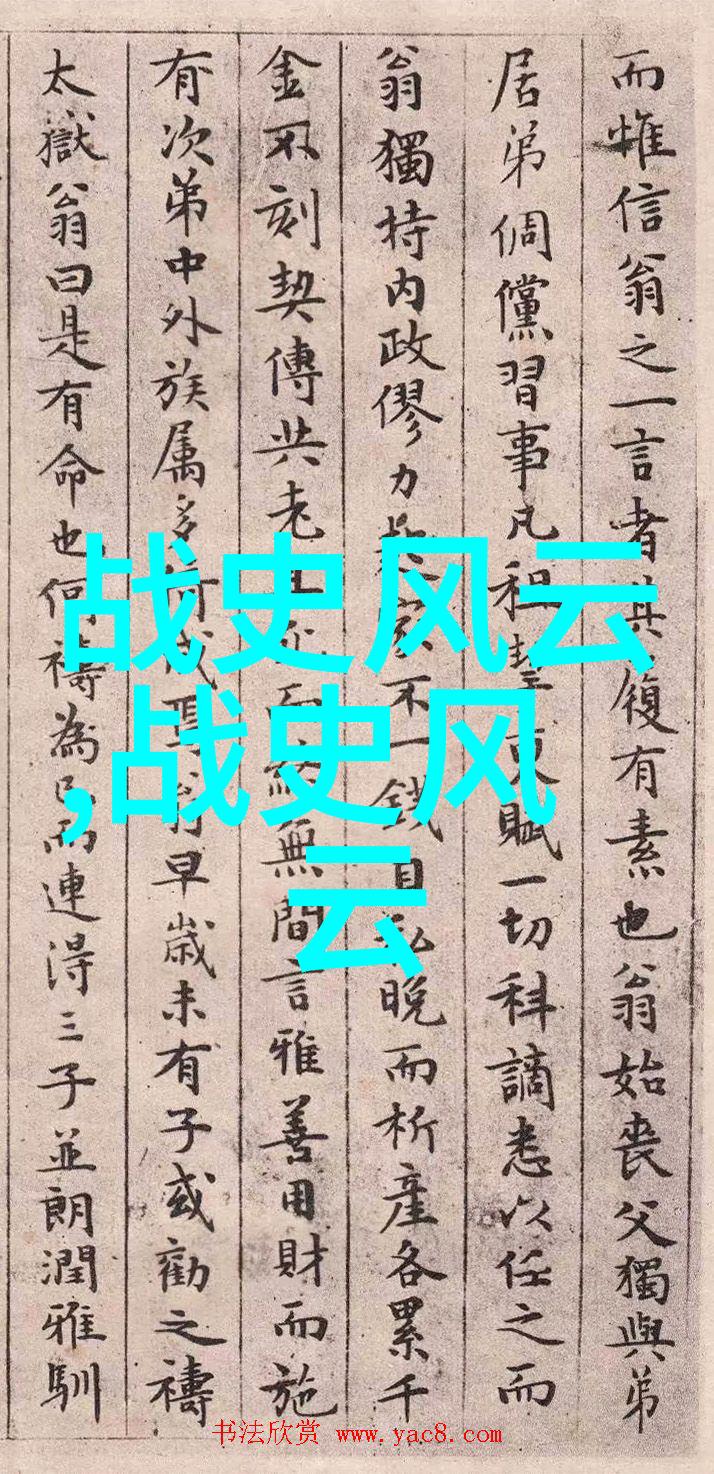 而惟信翁之一言者其履有素也翁始喪父獨與弟
居弟倜儻習事凡租 賦一切科謫悉以任之而
翁獨持内政僇力 不一錢自私晚而析產各累千
金不刻契傳共老 無間言雅善用財而施
有次第中外族属多 早歲未有子或勸之禱
太嶽翁曰是有命也何禱為已而連得三子並朗潤雅馴
战史风云
,战史风
云
书法欣赏 www.yac8.com